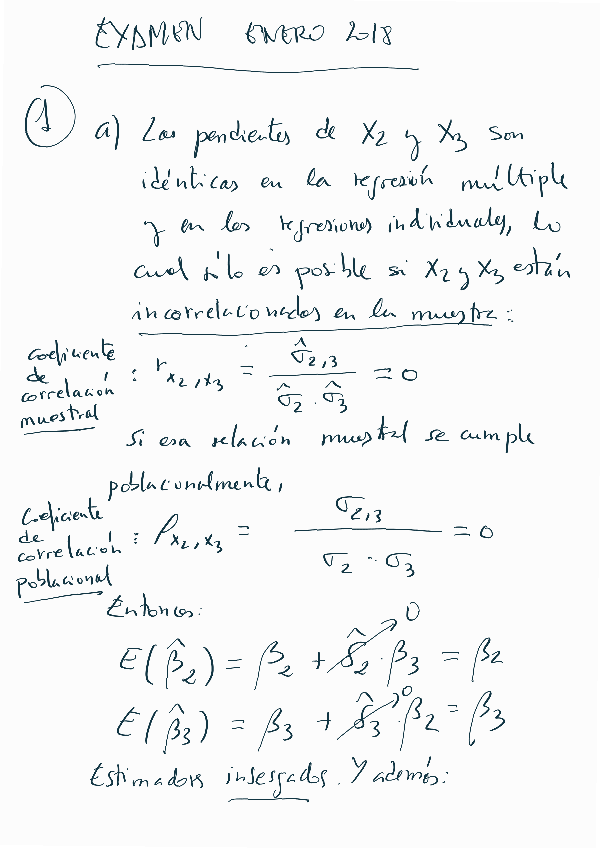 EXAMEN ENERO 2018
①
a) Las pendientes de X₂ y X₃ son
idénticas en la regresión múltiple
y en las regresiones individuales, lo
cual sólo es posible si X₂ y X₃ están
incorrelacionados en la muestra:
coeficiente de correlación muestral : r_{x₂,x₃} = σ̂₂,₃ / (σ̂₂ · σ̂₃) = 0
Si esa relación muestral se cumple
poblacionalmente,
Coeficiente de correlación poblacional : ρ_{x₂,x₃} = σ₂,₃ / (σ₂ · σ₃) = 0
Entonces:
E(β̂₂) = β₂ + δ̂₂ · β₃ = β₂ 0
E(β̂₃) = β₃ + δ̂₃ · β₂ = β₃ 0
Estimadores insesgados. Y además: